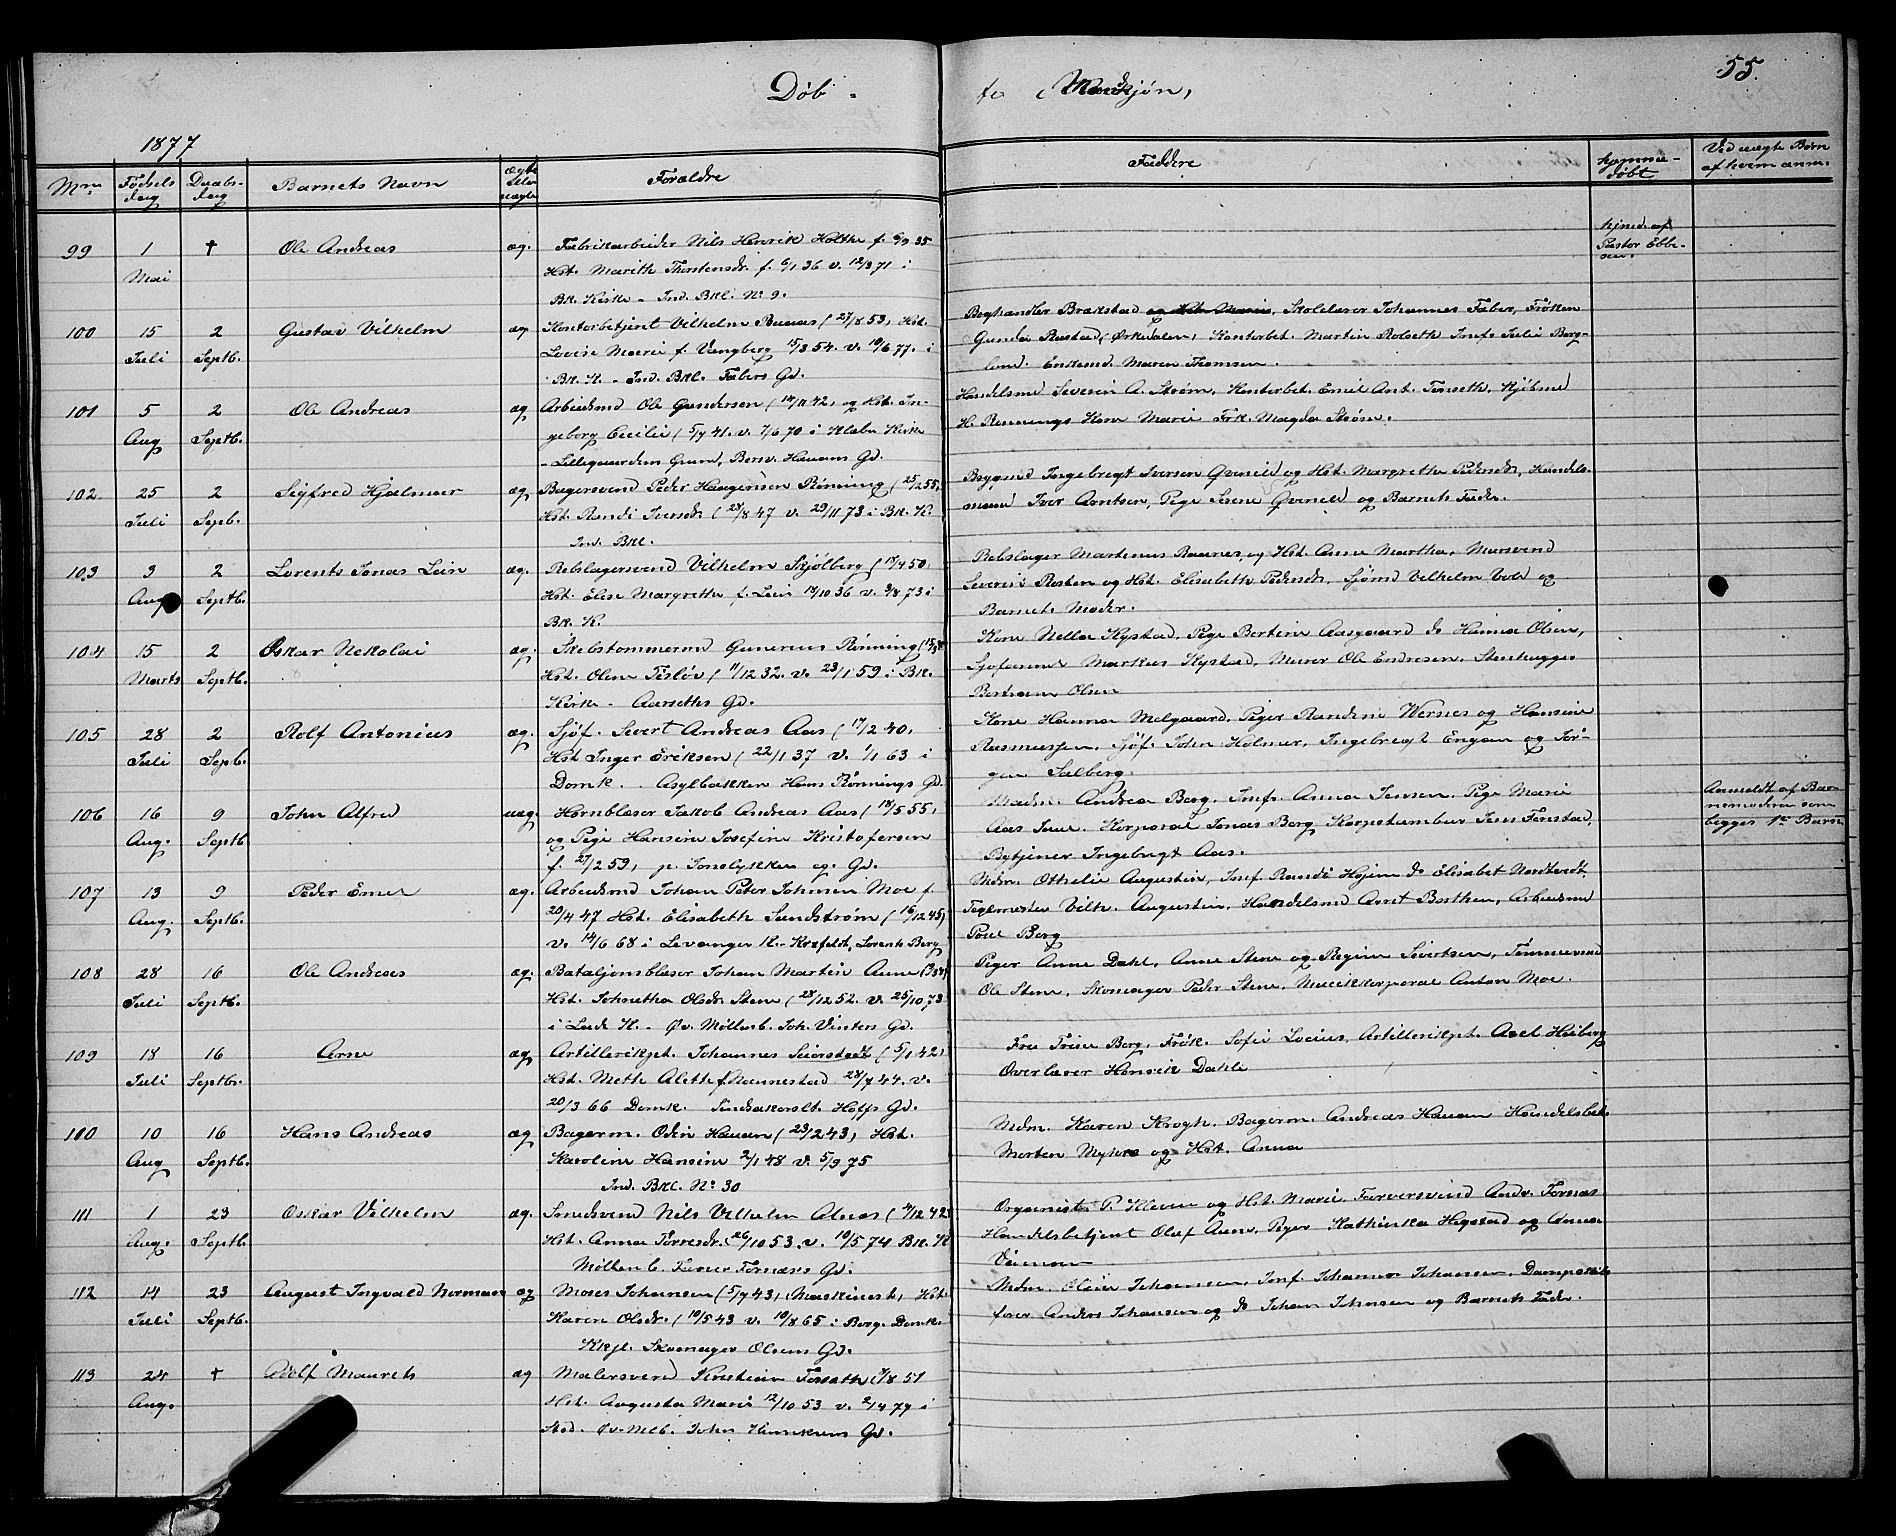 55.
Døb-
te Mandkjøn,
1877
No. Fødsels Dag Daabs-Dag Barnets Navn ægte eller uægte Forældre Faddere hjemme-døbt Ved uægte Børn af hvem anm.
99 1 Mai † Ole Andreas æg.
Fabrikarbeider Nils Henrik Holthe f. 6/9 35
Hst. Marith Thorstensdr. f. 6/1 36 v. 12/3 71 i
Bk. Kirke - Ind. Bkl. No 9.
hjmed. af
Pastor Ebbe-
sen.
100 15 Juli 2 Septb. Gustav Vilhelm æg
Kontorbetjent Vilhelm Buaas (27/8 53, Hst.
Lovise Marie f. Vangberg 15/3 54. v. 10/6 77. i
Bk. K - Ind. Bkl. Fabers Gd.
Boghandler Brækstad og Hst. Marie, Skolelærer Johannes Faber, Frøken
Gunda Rustad, Ørkedalen, Kontorbet. Martin Rolseth Jmf. Julie Berg-
lund. Enkemd. Maren Thomsen.
101 5 Aug 2 Septb. Ole Andreas æg
Arbeidsmd Ole Gundersen (14/11 42, og Hst. In-
geborg Cecilie (5/7 41. v. 7/6 70 i Klæbu Kirke
- Lillegaardens Grund, Berv. Hauans Gd.
Handelsmd Severin A. Strøm, Kontorbet. Emil Ant. Finseth, Kjøbmd
H. Rønnings Kone Marie Frk. Magda Strøm.
102 25 Juli 2 Sepb. Sigfred Hjalmar æg
Bagersvend Peder Haagensen Rønning (25/2 55,
Hst. Randi Iversdr. (28/8 47 v. 29/11 73 i Bk. K.
Ind. Bkl.
Bygmd Ingebrigt Iversen Øvereid og Hst. Margrethe Pedersdr, Handels-
mand Iver Arntsen, Pige Serene Øvereid og Barnets Fader.
103 3 Aug 2 Septb. Lorents Jonas Lein æg.
Rebslagersvend Vilhelm Skjølberg (17/4 50,
Hst. Elise Margrethe f. Lein 14/10 36 v. 3/8 73 i
Bk. K.
Rebslager Martinus Raanes og Hst. Anne Martha, Mursvend
Severin Rosten og Hst. Elisabeth Pedersdr, Sjømd Vilhelm Vold og
Barnets Moder.
104 15 Marts 2 Septb. Oskar Nekolai æg.
Skibstømmermd Gunerius Rønning
Hst. Oline Tisløv (11/12 32. v. 23/1 59 i Bk.
Kirke - Aarseths Gd.
Kone Nella Kystad, Pige Bertine Aasgaard do Hanna Olsen,
Sjøfarende Markus Kystad, Murer Ole Endresen. Stenhugger
Bertram Olsen
105 28 Juli 2 Sepb. Rolf Antonius æg.
Sjøf. Sivert Andreas Aas (17/2 40,
Hst Inger Eriksen (22/1 37 v. 1/1 63 i
Domk. - Asylbakken Hans Rønnings Gd.
Kone Hanna Melgaard. Piger Randine Wernes og Hansine
Rasmussen. Sjøf. John Holmer, Ingebregt Engan og Jør-
gen Salberg.
106 16 Aug. 9 Septb John Alfred uæg.
Hornblæser Jakob Andreas Aas (18/5 55,
og Pige Hansine Josefine Kristofersen
f. 21/2 59, p. Jonslykken eg. Gd.
Madm. Andrea Berg. Jmfr. Anna Jensen. Pige Marie
Aas Korporal Jonas Berg, Korpstambur Jens Fenstad,
Bytjener Ingebrigt Aas.
Anmeldt af Bar-
nemoderen som
begges 1ste Barn
107 13 Aug. 9 Septb. Peder Emil æg.
Arbeidsmd Johan Peter Johnsen Moe f.
20/4 47 Hst. Elisabeth Sundstrøm (16/12 45)
v. 14/6 68 i Levanger K. - Krefeldt, Lorents Berg
Mdm. Othelie Augustin, Jmf. Randi Hojem do Elisabet Nordtvedt,
Teglmester Vilh. Augustin, Handelsmd Arnt Barthen, Arbeidsmd
Poul Berg
108 28 Juli 16 Septb. Ole Andreas æg.
Bataljonsblæser Johan Martin Aune
Hst. Johnetha Olsdr. Stene (28/12 52. v. 25/10 73.
i Lade K. - Øv. Møllenb. Joh. Vintens Gd.
Piger Anne Dahl, Anne Stene og Regine Sivertsen, Tømmermd
Ole Stene, Skomager Peder Stene, Musikkorporal Anton Moe.
109 18 Juli 16 Septb. Arne æg
Artillerikpt. Johannes Seierstedt (5/1 42,
Hst. Mette Alette f. Nannestad 28/7 44. v.
20/3 66 Domk. Sindsakoralt. Hoffs Gd.
Fru Trine Berg, Frøk. Sofie Locius, Artillerikpt. Axel Heiberg
Overlærer Henrik Dahl
110 10 Aug 16 Septb. Hans Andreas æg
Bagerm. Odin Hauan (23/2 43, Hst.
Karoline Hansine 2/1 48 v. 5/9 75
Ind. Bkl. No 30
Mdm. Karen Krogh. Bagerm. Andreas Hauan Handelsbet.
Morten Myhre og Hst. Anna
111 1 Aug. 23 Septb Oskar Vilhelm æg.
Smedsvend Nils Vilhelm Alnæs (4/12 42,
Hst. Anna Torresdr. (26/10 53. v. 10/5 74 Bk. K
Møllenb. Farver Fornæss Gd.
Organist P. Kleven og Hst. Marie. Farversvend Andr. Fornæs
Handelsbetjent Oluf Aune, Piger Kathinka Hegstad og Anna
Veiman
112 14 Juli 23 Septb. August Ingvald Norman æg
Moses Johansen (5/7 43, Maskinest, Hst.
Karen Olsdr. (10/5 43 v. 10/8 65 i Berg. Domk.
Kkjl. Skomager Olsens Gd.
Mdm. Oline Johansen, Jmf. Johanna Johansen. Dampskibs-
fører Anders Johansen og do Johan Johnsen og Barnets Fader.
113 24 Aug. † Adolf Maurets æg
Malersvend Kristian Forseth 8/8 51
Hst. Augusta Marie 12/10 53 v. 2/4 77 i
Sted. Øv. Mlb. John Henriksens Gd.